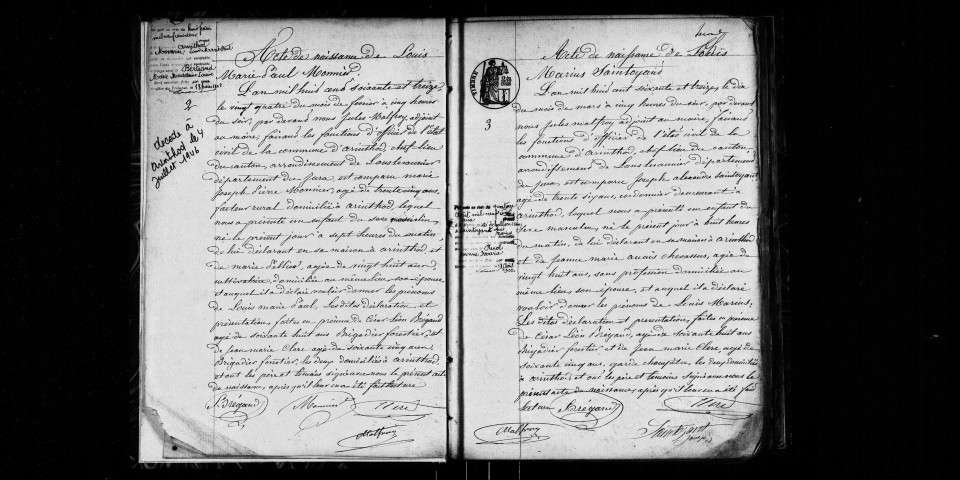 Acte de naissance de Louis
Marie Paul Monnier
L'an mil huit cent soixante et treize
le vingt quatre du mois de février à cinq heures
du soir, par devant nous Jules Malfroy, adjoint
au maire, faisant les fonctions d'officier de l'état
civil de la commune d'arinthod, chef lieu
du canton, arrondissement de Lons le saunier
département du Jura, est comparu marie
joseph Pierre Monnier, agé de trente cinq ans,
facteur rural domicilié à arinthod, lequel
nous a présenté un enfant du sexe masculin,
né le présent jour à sept heures du matin,
de lui déclarant en sa maison à arinthod et
de marie, agée de vingt huit ans,
cultivatrice, domiciliée au même lieu, son épouse,
et auquel il a déclaré vouloir donner les prénoms
de Louis marie Paul, Lesdites déclaration et
présentation, faites en présence de César Léon Brégand
agé de soixante huit ans Brigadier forestier, et
de jean marie Clerc agé de soixante cinq ans
Brigadier forestier, les deux domiciliés à arinthod,
et ont les père et témoins signé avec nous le présent acte
de naissance, après qu'il leur en a été fait lecture
Brégand Monnier Clerc
Malfroy
2
décédé à
Arinthod le 4
juillet 1946
Acte de naissance de Louis
Marius Saintoyant
L'an mil huit cent soixante et treize, le dix
du mois de mars à cinq heures du soir, par devant
nous Jules malfroy adjoint au maire, faisant
les fonctions d'officier de l'état civil de la
commune d'arinthod, chef lieu du canton,
arrondissement de Lons le saunier département
du jura, est comparu joseph alexandre Saintoyant
agé de trente six ans, cordonnier demeurant à
arinthod, lequel nous a présenté un enfant du
sexe masculin, né le présent jour à huit heures
du matin, de lui déclarant en sa maison à arinthod
et de jeanne marie, agée de
vingt huit ans, sans profession domiciliée au
même lieu, son épouse, et auquel il a déclaré
vouloir donner les prénoms de Louis Marius,
Les dites déclaration et présentation, faites en présence
de César Léon Brégand, agé de soixante huit ans
Brigadier forestier et de jean marie Clerc, agé de
soixante cinq ans, garde champêtre, les deux domiciliés
à arinthod et ont les père et témoins signé avec nous le
présent acte de naissance, après qu'il leur en a été fait
lecture Brégand Clerc
Malfroy Saintoyant
3
TIMBRE